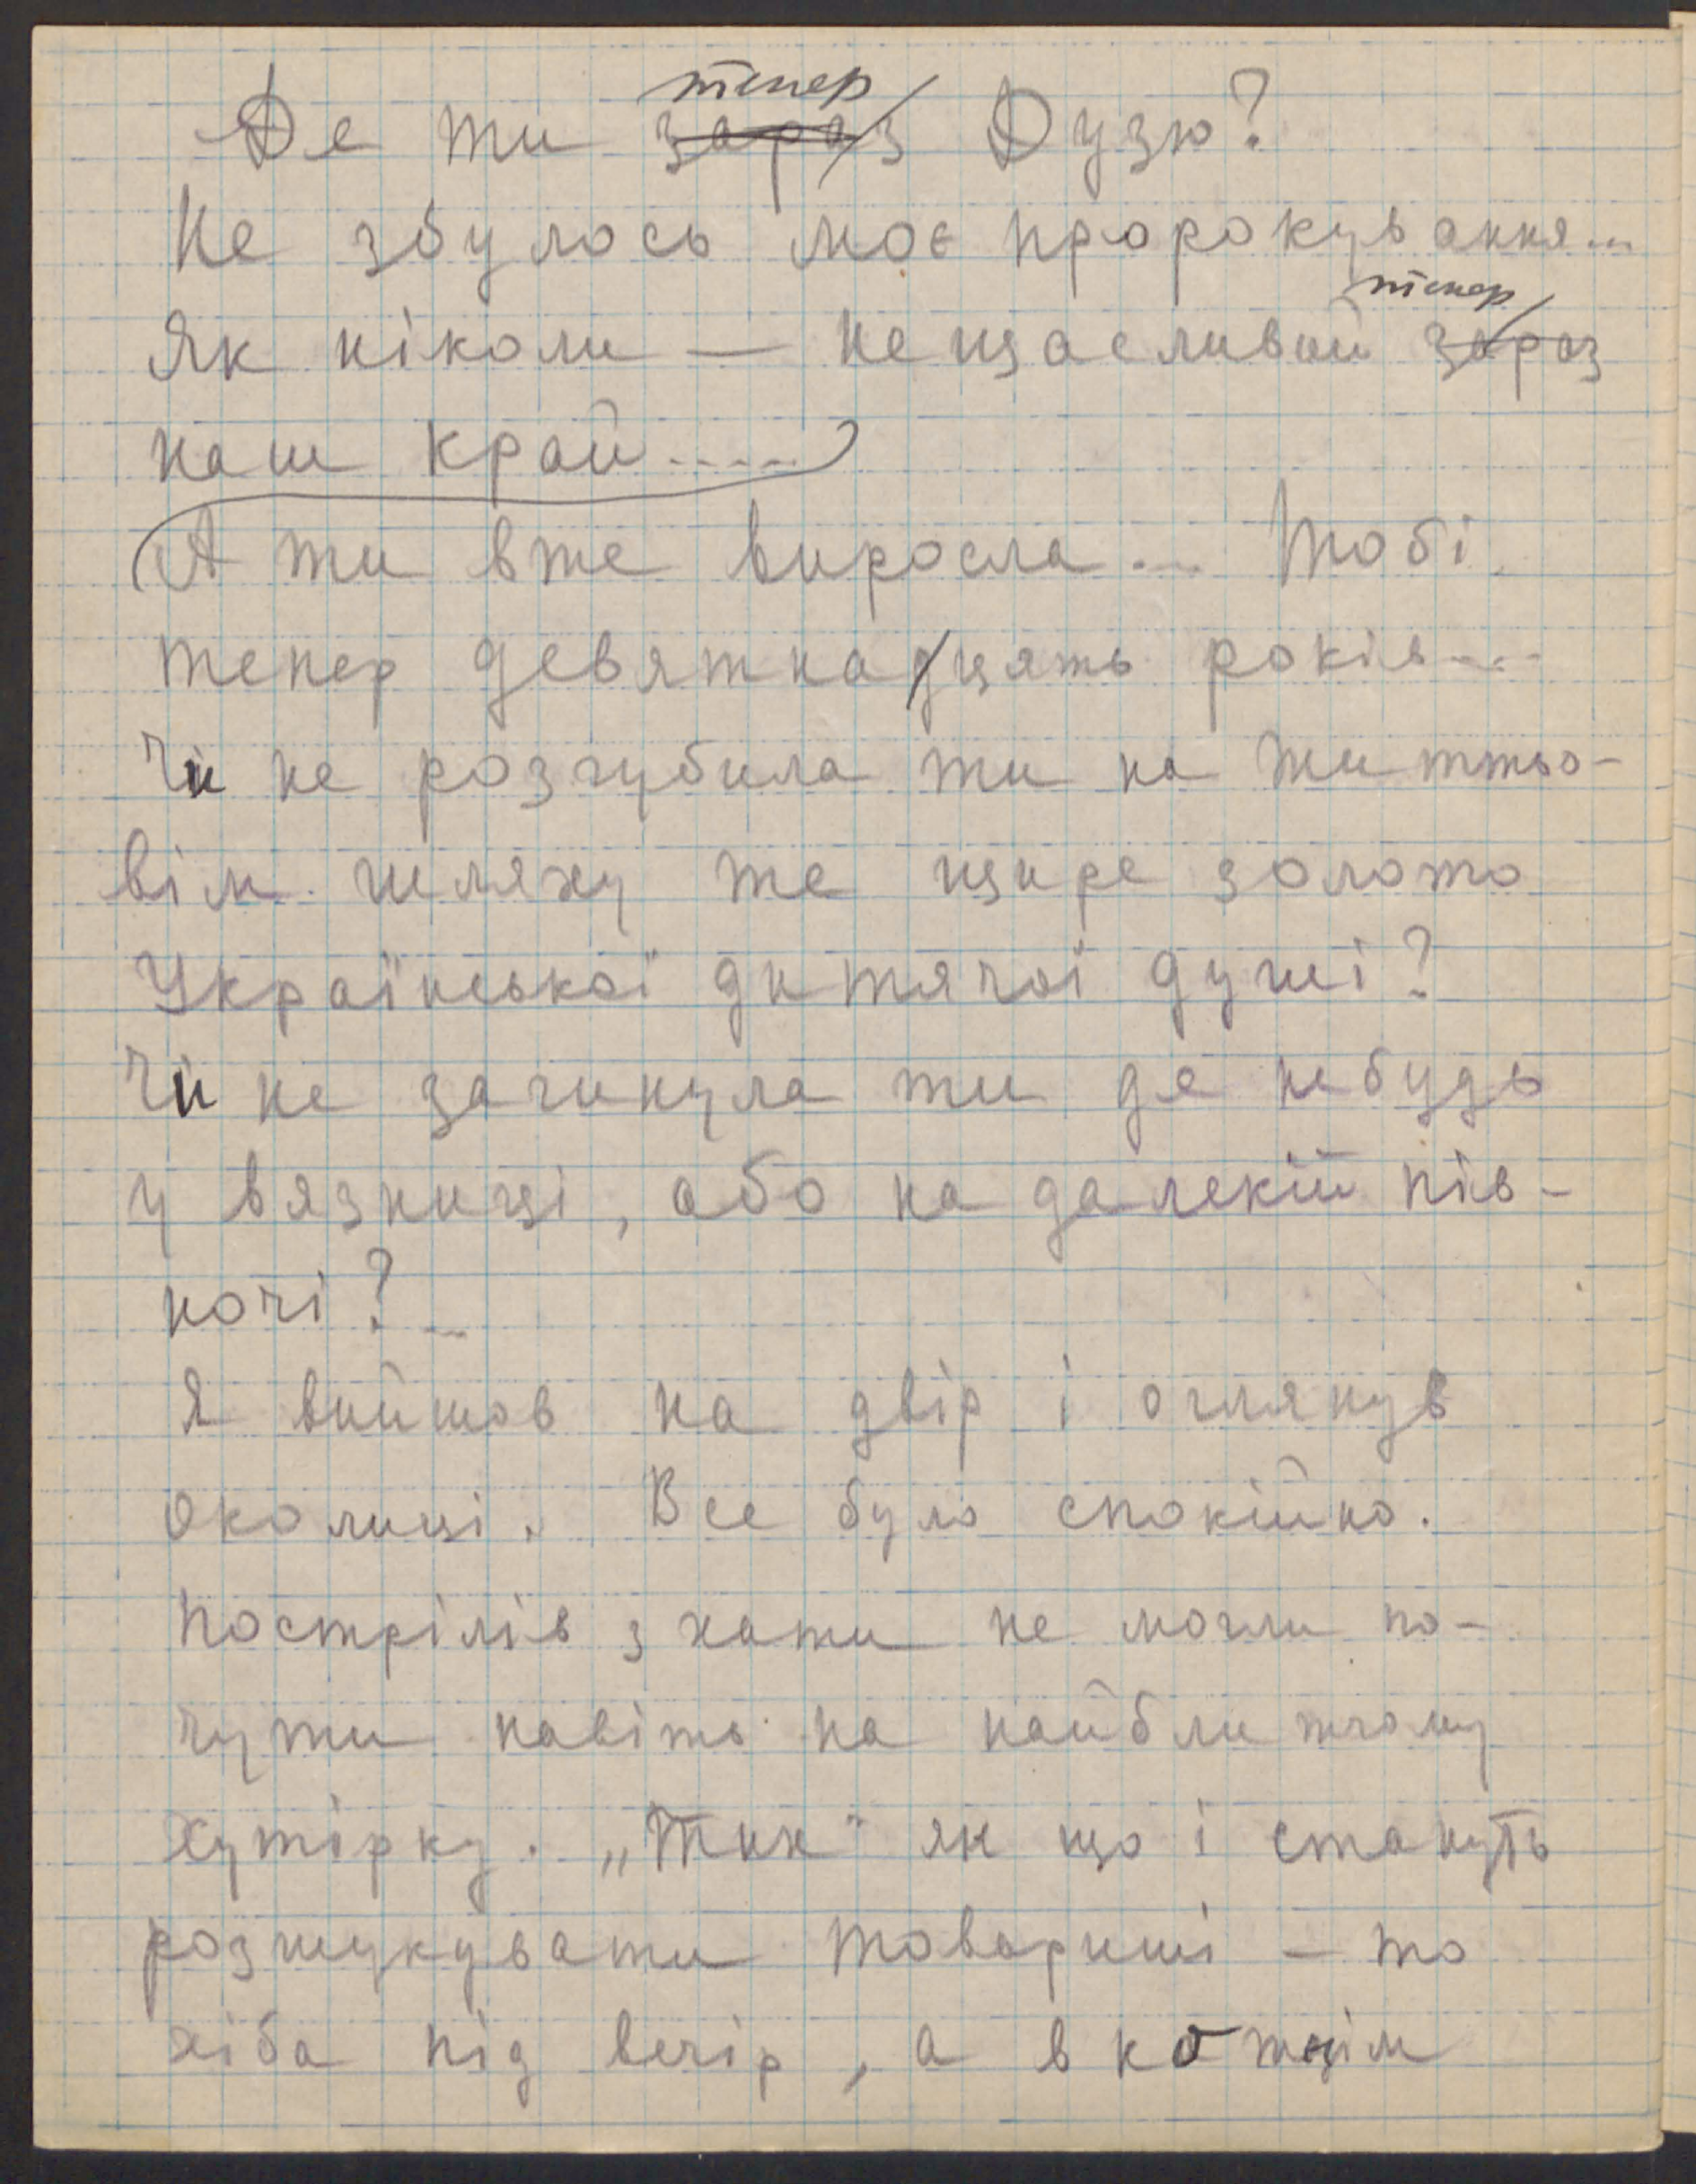 Де ти тепер Дузю?
Не збулось моє пророкування...
Як ніколи — нещасливий тепер
наш край.....
А ти вже виросла... Тобі
тепер девятнацять років....
Чи не розгубила ти на життьо-
вім шляху те щире золото
Української дитячої душі?
Чи не загинула ти де небудь
у вязниці, або на далекій пів-
ночі?..
Я вийшов на двір і оглянув
околиці. Все було спокійно.
Пострілів з хати не могли по-
чути навіть на найближчому
хутірку. „Тих" як що і стануть
розшукувати товариші – то
хіба під вечір, а в кожнім